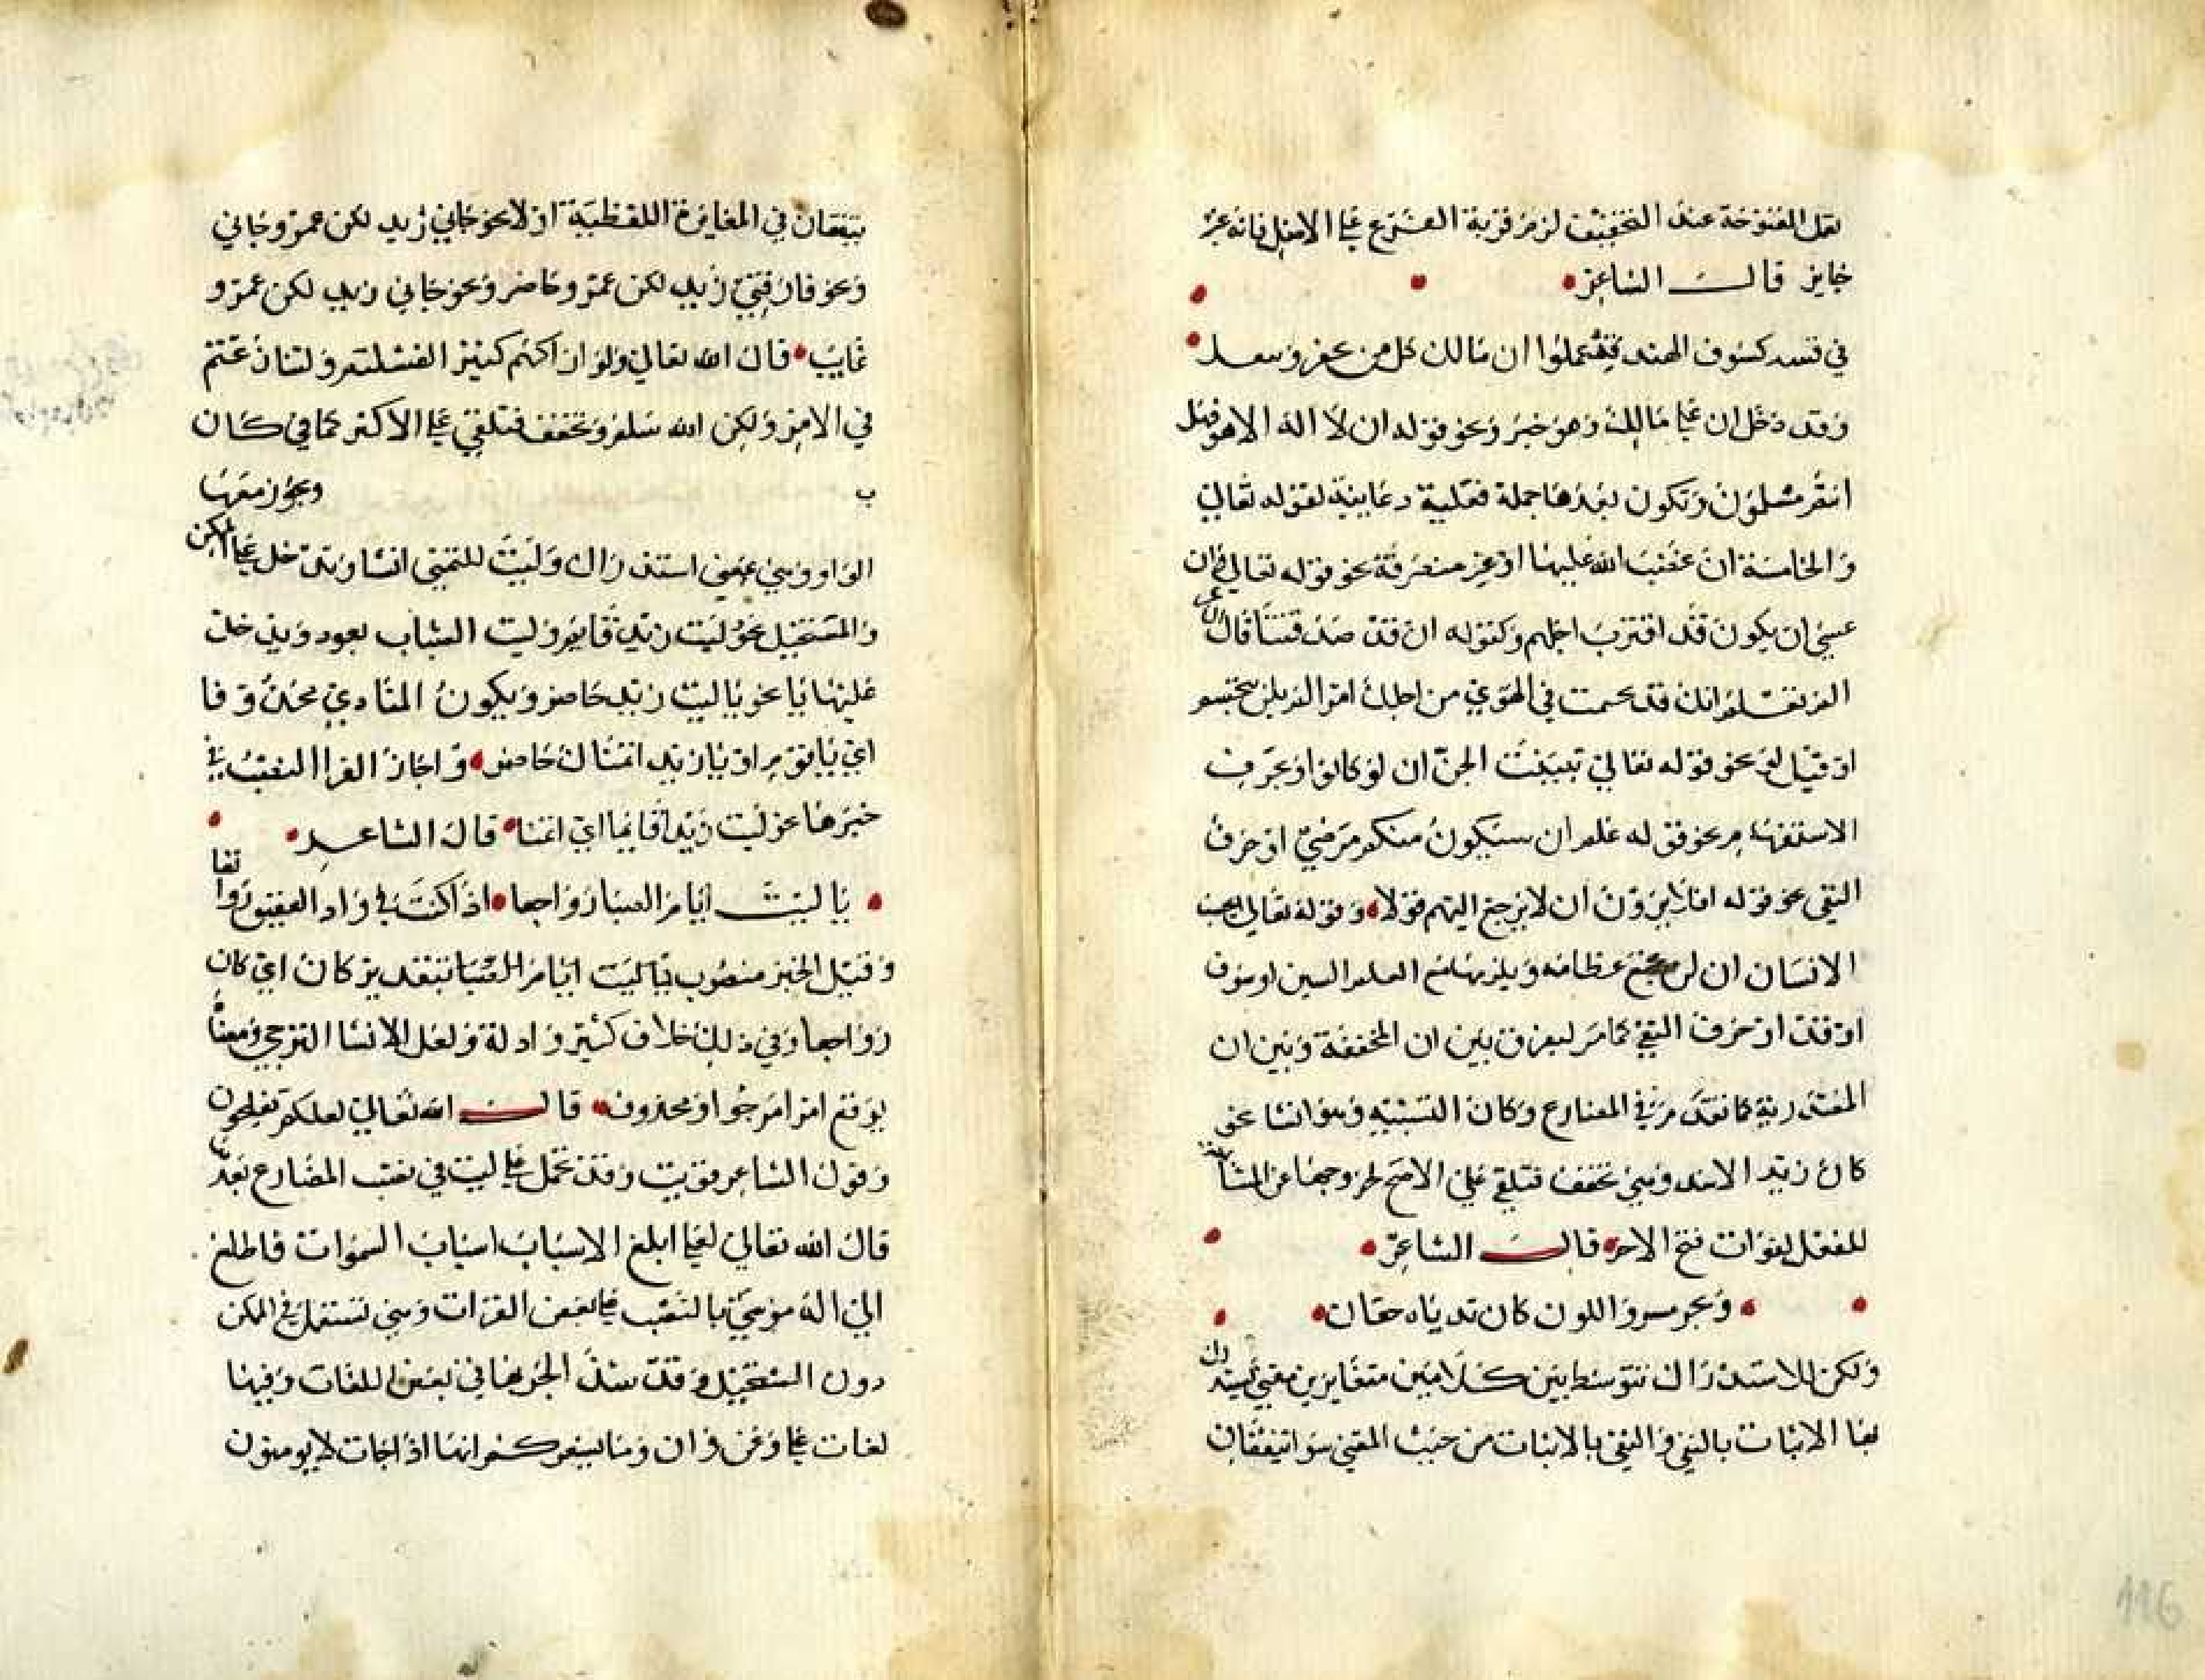 نقل المفتوحة عند التخفيف لزم مزية الفرع على الاصل فانه غير
جايز قال الشاعر
في كسيوف الهند قد علموا ان هالك كل من يحفى وينتعل
وقد دخل ان على هالك وهو خبر ونحو قوله ان لا اله الا هو فهل
انتم مسلمون وتكون بعدها جملة فعلية دعايية لقوله تعالى
والخامسة ان غضب الله عليها او غير متصرفة نحو قوله تعالى وان
عسى ان يكون قد اقترب اجلهم وكقوله ان قد صدقتنا قال
الم تعلم انك قد في الهوى من اجلك
او قبل لو نحو قوله تعالى تبينت الجن ان لو كانوا او بحرف
الاستفهام نحو قوله علم ان سيكون منكم مرضى او حرف
النفي نحو قوله افلا يرون ان لا يرجع اليهم قولا وقوله تعالى ايحسب
الانسان ان لن نجمع عظامه ويلزمها مع العلم السين او سوف
او قد او حرف النفي كما مر ليفرق بين ان المخففة وبين ان
المصدرية كما تقدم في المضارع وكان للتشبيه وهو انشا نحو
كان زيد الاسد وهي تخفف فتلغى على الافصح لخروجها عن المشابهة
للفعل لفوات فتح الاخر قال الشاعر
ونحر اللون كان ثدياه حقان
ولكن للاستدراك تتوسط بين كلامين متغايرين معنى فيستدرك
بها الاثبات بالنفي والنفي بالاثبات من حيث المعنى سوا يتفقان
يتفقان في المغايرة اللفظية او لا نحو جاني زيد لكن عمرو جاني
ونحو فارقني زيد لكن عمرو حاضر ونحو جاني زيد لكن عمرو
غايب قال الله تعالى ولو اراكهم كثيرا لفشلتم ولتنازعتم
في الامر ولكن الله سلم وتخفف فتلغى على الاكثر كما في كان
ويجوز معها
الواو وهي استدراك وليت للتمني انشا وتدخل على الممكن
والمستحيل نحو ليت زيد قايم وليت الشباب يعود وتدخل
عليها يا نحو يا ليت زيد حاضر ويكون المنادى محذوفا
اي يا قوم او يا زيد اتمناك حاضر واجاز الفرا النصب في
خبرها نحو ليت زيدا قايما اي اتمنا قال الشاعر
يا ليت ايام الصبا رواجعا اذ كنت في واد العقيق
وقيل الخبر منصوب يا ليت ايام الصبا بتقدير كان اي كان
رواجعا وفي ذلك خلاف كثير وادلة ولعل لانشا الترجي ومعناه
توقع امر مرجوا او محذور قال الله تعالى لعلكم تفلحون
وقول الشاعر وقد تحمل على ليت في نصب المضارع بعد
قال الله تعالى لعلي ابلغ الاسباب اسباب السموات فاطلع
الى اله موسى بالنصب على بعض القرات وهي تستعمل في الممكن
دون المستحيل وقد شذ الجر بها في بعض اللغات وفيها
لغات عل وعن وان وما يشعركم انها اذا جات لا يومنون